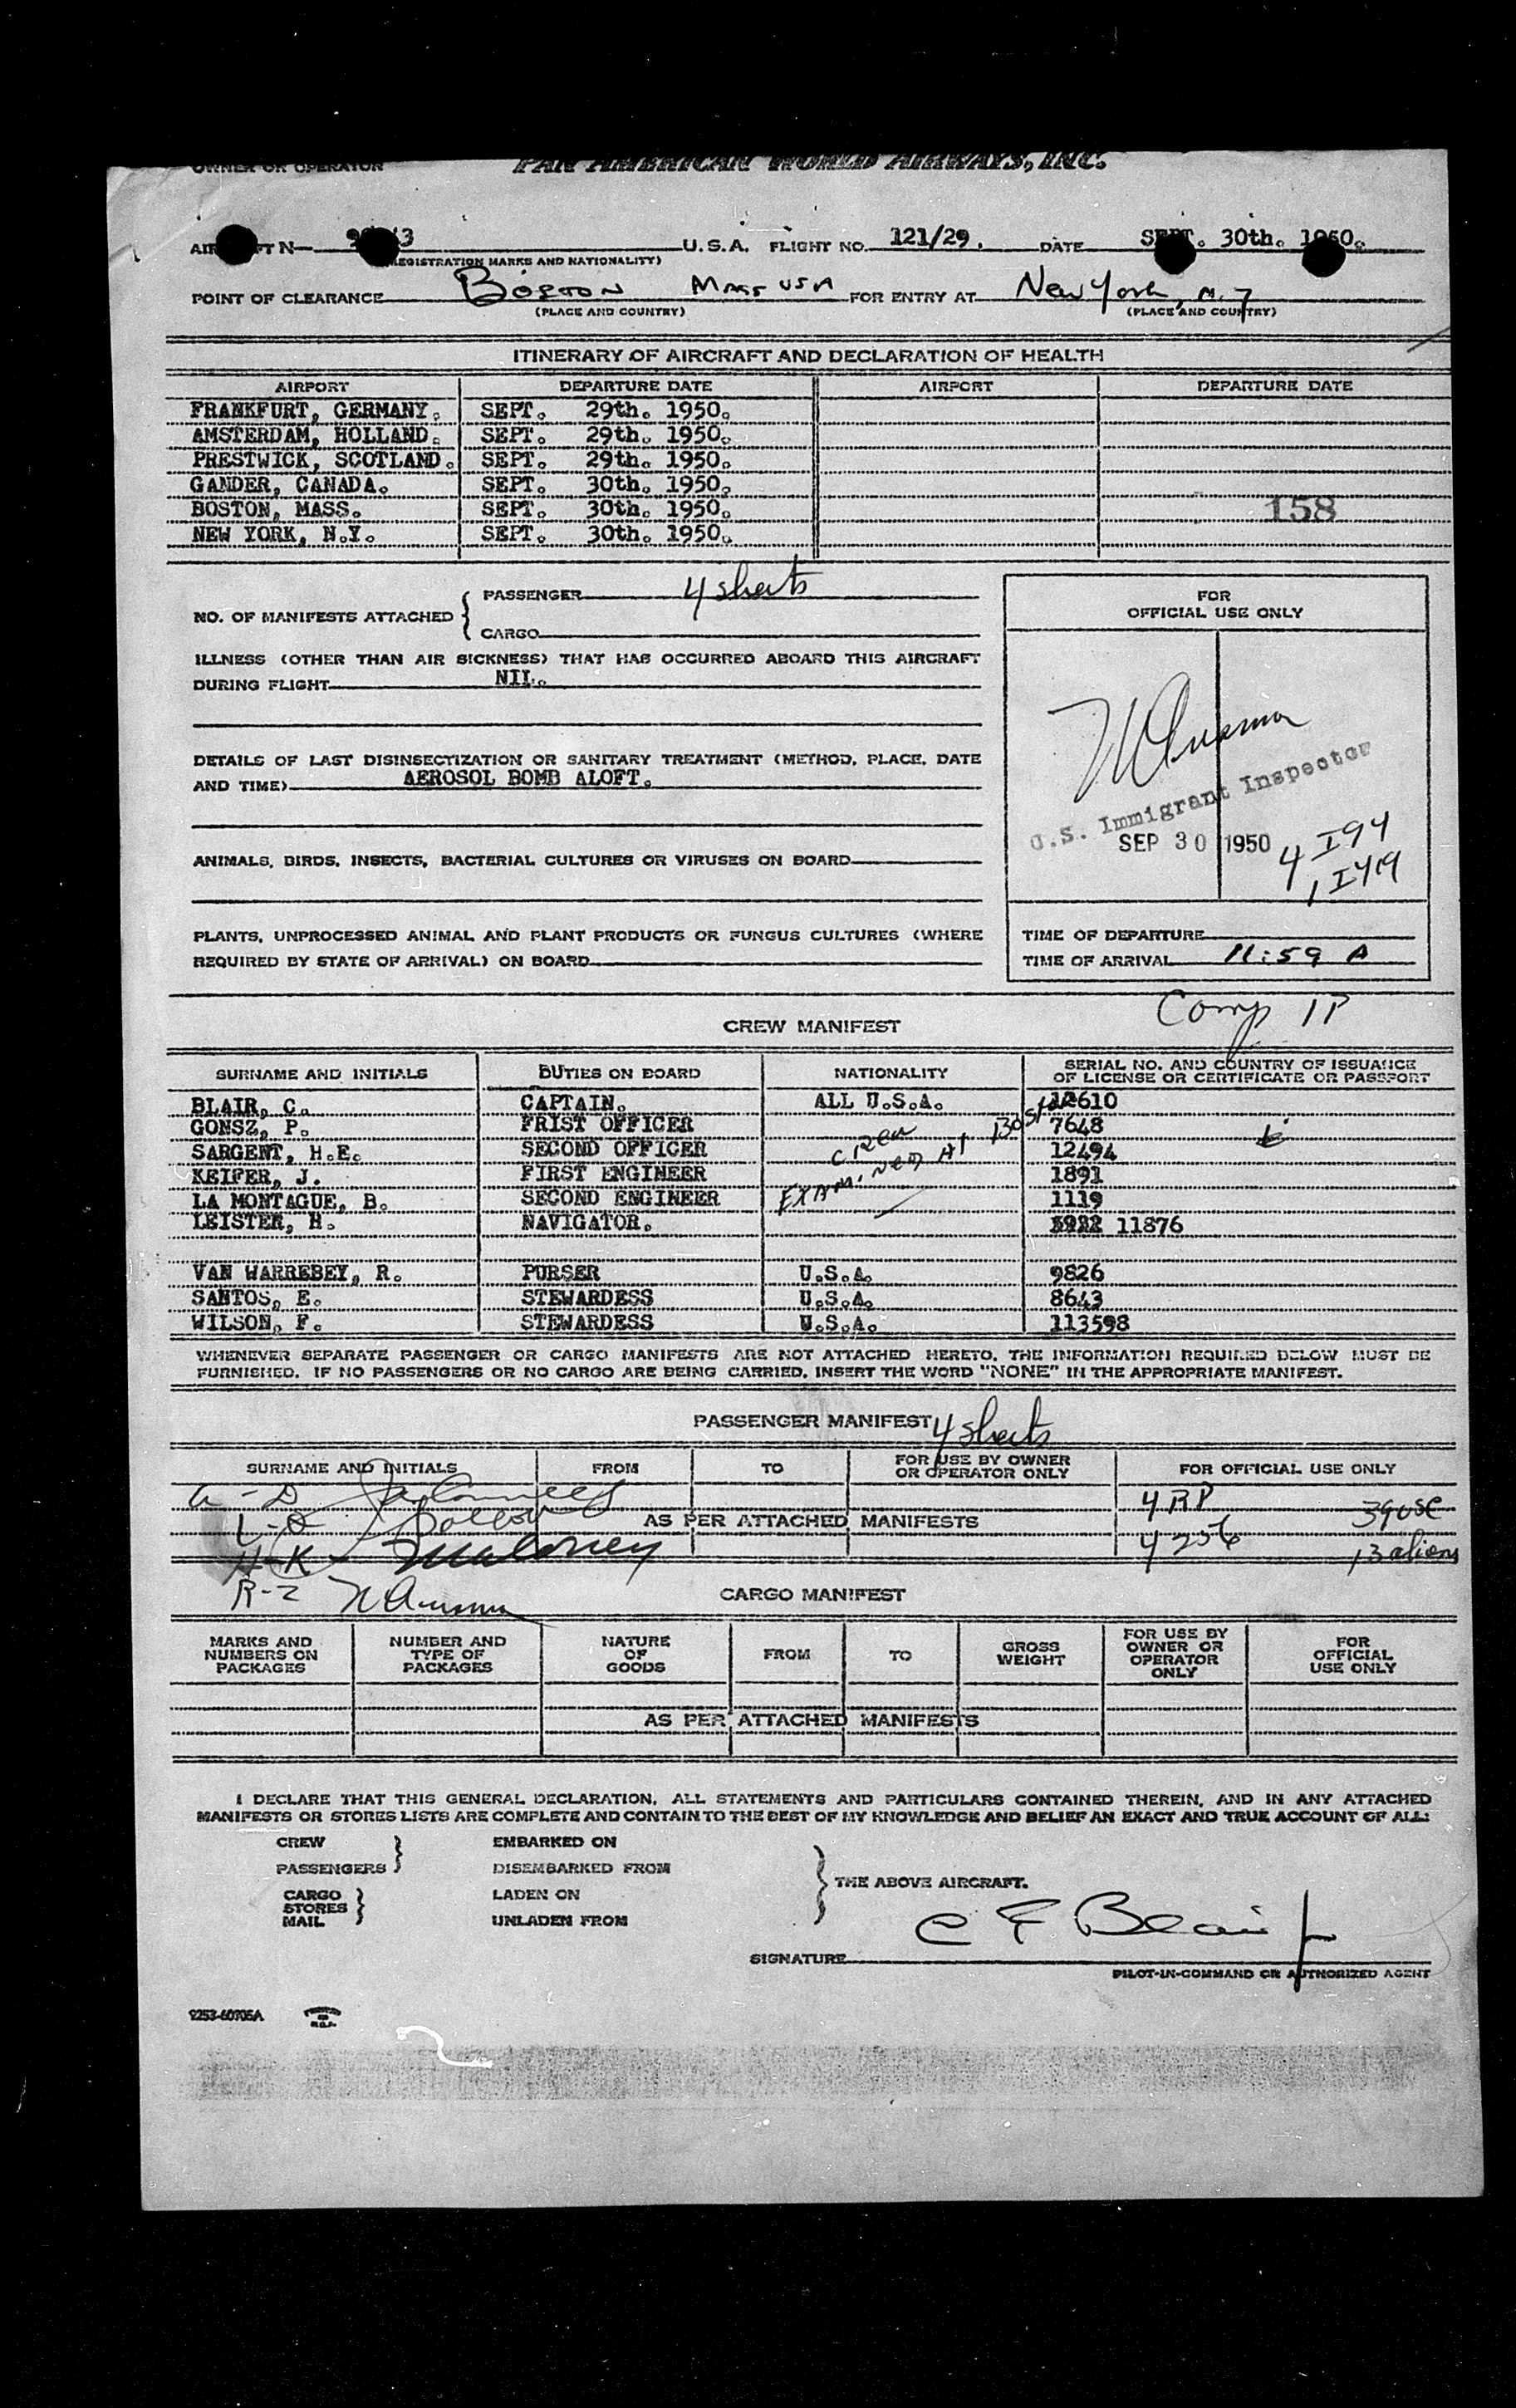 OWNER OR OPERATOR PAN AMERICAN WORLD AIRWAYS, INC.
N- U.S.A. FLIGHT NO. 121/29. DATE SEPT. 30th. 1950.
(REGISTRATION MARKS AND NATIONALITY)
POINT OF CLEARANCE BOSTON MASS USA FOR ENTRY AT New York, N.Y
(PLACE AND COUNTRY) (PLACE AND COUNTRY)
ITINERARY OF AIRCRAFT AND DECLARATION OF HEALTH
AIRPORT DEPARTURE DATE AIRPORT DEPARTURE DATE
FRANKFURT, GERMANY. SEPT. 29th. 1950.
AMSTERDAM, HOLLAND. SEPT. 29th. 1950.
PRESTWICK, SCOTLAND. SEPT. 29th. 1950.
GANDER, CANADA. SEPT. 30th. 1950.
BOSTON, MASS. SEPT. 30th. 1950. 158
NEW YORK, N.Y. SEPT. 30th. 1950.
NO. OF MANIFESTS ATTACHED { PASSENGER 4 sheets
CARGO
ILLNESS (OTHER THAN AIR SICKNESS) THAT HAS OCCURRED ABOARD THIS AIRCRAFT
DURING FLIGHT NIL.
DETAILS OF LAST DISINSECTIZATION OR SANITARY TREATMENT (METHOD, PLACE, DATE
AND TIME) AEROSOL BOMB ALOFT.
ANIMALS, BIRDS, INSECTS, BACTERIAL CULTURES OR VIRUSES ON BOARD
PLANTS, UNPROCESSED ANIMAL AND PLANT PRODUCTS OR FUNGUS CULTURES (WHERE
REQUIRED BY STATE OF ARRIVAL) ON BOARD
FOR
OFFICIAL USE ONLY
U.S. Immigrant Inspector
SEP 30 1950
4 I94
1 I419
TIME OF DEPARTURE
TIME OF ARRIVAL 11:59 A
Comp 1P
CREW MANIFEST
SURNAME AND INITIALS DUTIES ON BOARD NATIONALITY SERIAL NO. AND COUNTRY OF ISSUANCE
OF LICENSE OR CERTIFICATE OR PASSPORT
BLAIR, C. CAPTAIN. ALL U.S.A. 12610
GONSZ, P. FRIST OFFICER 7648
SARGENT, H.E. SECOND OFFICER 12494
KEIFER, J. FIRST ENGINEER 1891
LA MONTAGUE, B. SECOND ENGINEER 1119
LEISTER, H. NAVIGATOR. 11876
CREW
EXAMINED AT BOSTON
VAN WARREBEY, R. PURSER U.S.A. 9826
SANTOS, E. STEWARDESS U.S.A. 8643
WILSON, F. STEWARDESS U.S.A. 113598
WHENEVER SEPARATE PASSENGER OR CARGO MANIFESTS ARE NOT ATTACHED HERETO, THE INFORMATION REQUIRED BELOW MUST BE
FURNISHED. IF NO PASSENGERS OR NO CARGO ARE BEING CARRIED, INSERT THE WORD "NONE" IN THE APPROPRIATE MANIFEST.
PASSENGER MANIFEST 4 sheets
SURNAME AND INITIALS FROM TO FOR USE BY OWNER
OR OPERATOR ONLY FOR OFFICIAL USE ONLY
4 RP 39 USC
AS PER ATTACHED MANIFESTS
H-K Maloney 4 256 13 aliens
R-Z
CARGO MANIFEST
MARKS AND
NUMBERS ON
PACKAGES NUMBER AND
TYPE OF
PACKAGES NATURE
OF
GOODS FROM TO GROSS
WEIGHT FOR USE BY
OWNER OR
OPERATOR
ONLY FOR
OFFICIAL
USE ONLY
AS PER ATTACHED MANIFESTS
I DECLARE THAT THIS GENERAL DECLARATION, ALL STATEMENTS AND PARTICULARS CONTAINED THEREIN, AND IN ANY ATTACHED
MANIFESTS OR STORES LISTS ARE COMPLETE AND CONTAIN TO THE BEST OF MY KNOWLEDGE AND BELIEF AN EXACT AND TRUE ACCOUNT OF ALL:
CREW EMBARKED ON
PASSENGERS DISEMBARKED FROM
CARGO LADEN ON THE ABOVE AIRCRAFT.
STORES
MAIL UNLADEN FROM
SIGNATURE C F Blair Jr
PILOT-IN-COMMAND OR AUTHORIZED AGENT
9253-60705A